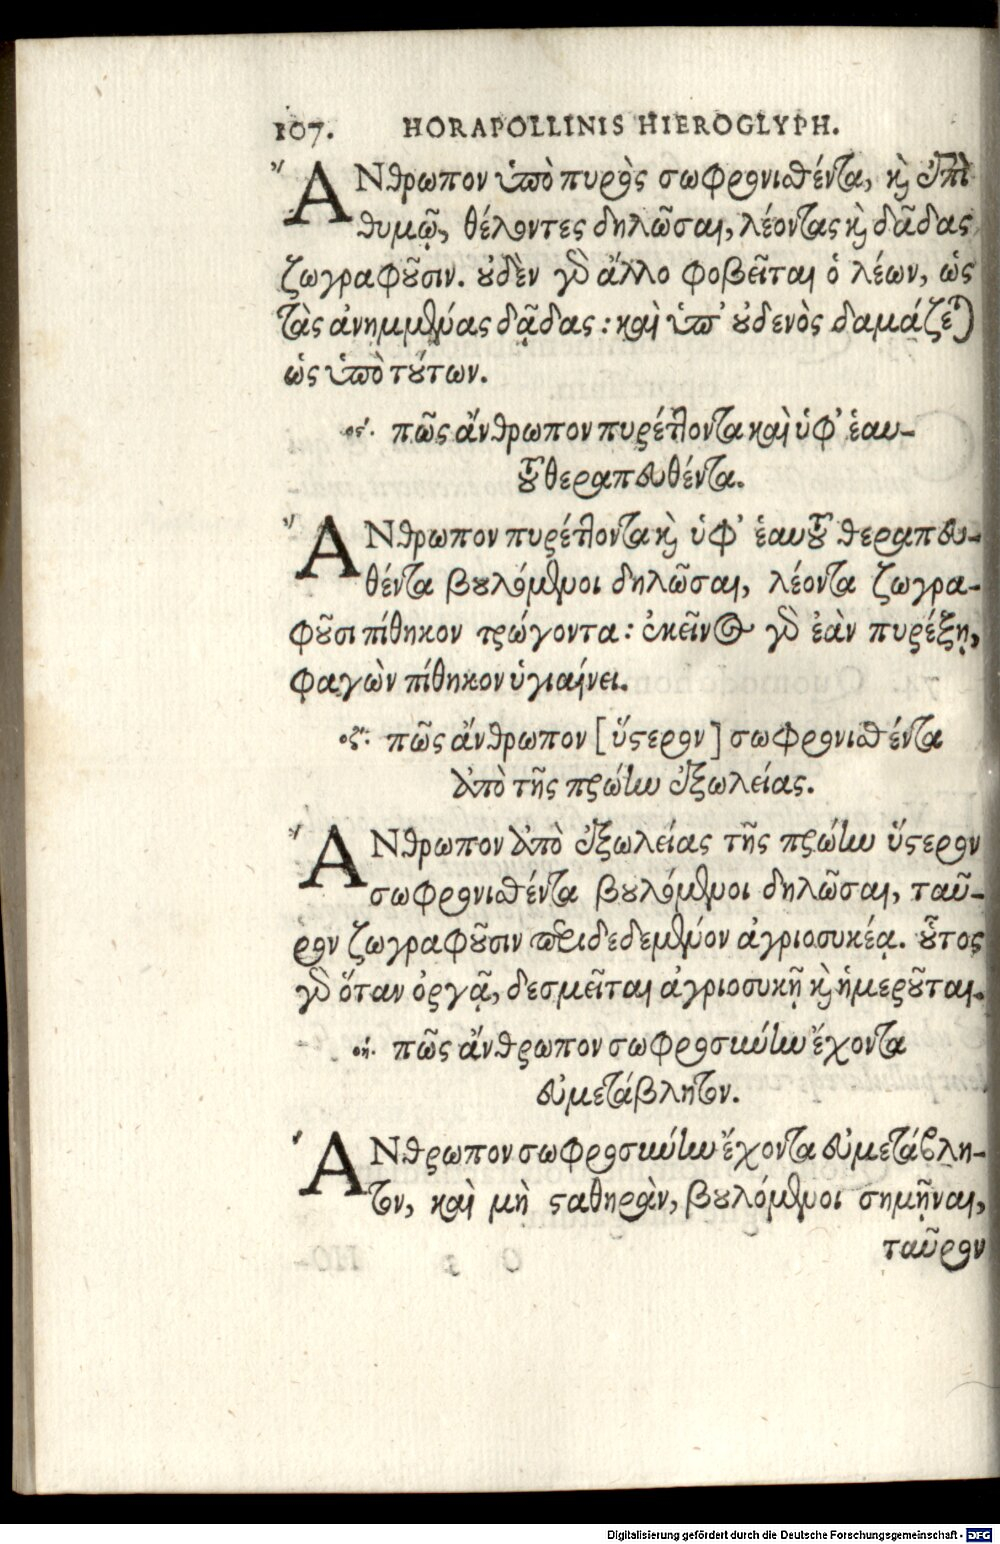 107. HORAPOLLINIS HIEROGLYPH.
ἌΝθρωπον ὑπὸ πυρὸς σωφρονισθέντα, κὶ ἐπὶ
θυμῷ, θέλοντες δηλῶσαι, λέοντας κὶ δᾶδας
ζωγραφοῦσιν. οὐδὲν γὸ ἄλλο φοβεῖται ὁ λέων, ὡς
τὰς ἀνημμένας δᾷδας : καὶ ὑπ' οὐδενὸς δαμάζεται
ὡς ὑπὸ τούτων.
ος΄. πῶς ἄνθρωπον πυρέττοντα καὶ ὑφ' ἑαυ-
τοῦ θεραπευθέντα.
ἌΝθρωπον πυρέττοντα κὶ ὑφ' ἑαυτοῦ θεραπευ-
θέντα βουλόμενοι δηλῶσαι, λέοντα ζωγρα-
φοῦσι πίθηκον τρώγοντα : ἐκεῖνος γὸ ἐὰν πυρέξῃ,
φαγὼν πίθηκον ὑγιαίνει.
οζ΄. πῶς ἄνθρωπον [ὕστερον] σωφρονισθέντα
ἀπὸ τῆς πρώην ἐξωλείας.
ἌΝθρωπον ἀπὸ ἐξωλείας τῆς πρώην ὕστερον
σωφρονισθέντα βουλόμενοι δηλῶσαι, ταῦ-
ρον ζωγραφοῦσιν περιδεδεμένον ἀγριοσυκέᾳ. οὗτος
γὸ ὅταν ὀργᾷ, δεσμεῖται ἀγριοσυκῇ κὶ ἡμεροῦται.
οη΄. πῶς ἄνθρωπον σωφροσύνην ἔχοντα
εὐμετάβλητον.
ἌΝθρωπον σωφροσύνην ἔχοντα εὐμετάβλη-
τον, καὶ μὴ σταθηρὰν, βουλόμενοι σημῆναι,
ταῦρον
Digitalisierung gefördert durch die Deutsche Forschungsgemeinschaft - DFG